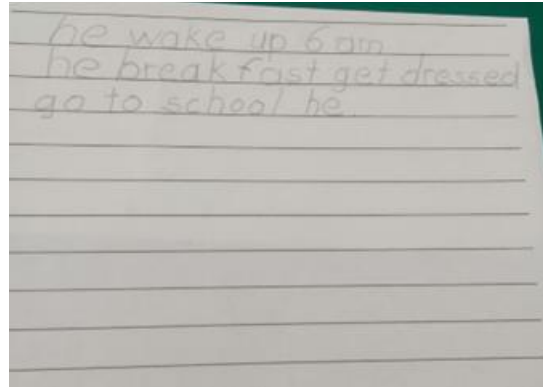 he wake up 6 am
he breakfast get dressed
go to school he.